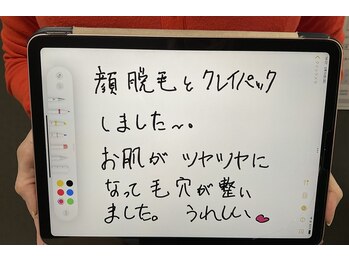 顔脱毛とクレイパック
しました〜。
お肌がツヤツヤに
なって毛穴が整い
ました。うれしい